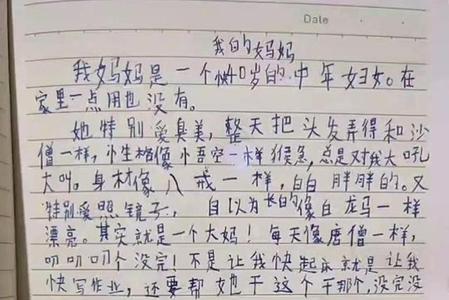 Date
我的妈妈
我妈妈是一个快40岁的中年妇女。在
家里一点用也没有。
她特别爱臭美,整天把头发弄得和沙
僧一样,小生格像小悟空一样猴急,总是对我大吼
大叫。身材像八戒一样,白白胖胖的。又
特别爱照镜子,自以为长的像白龙马一样
漂亮。其实就是一个大妈!每天像唐僧一样,
叨叨叨个没完!不是让我快起床就是让我
快写作业,还要帮她干这个干那个,没完没